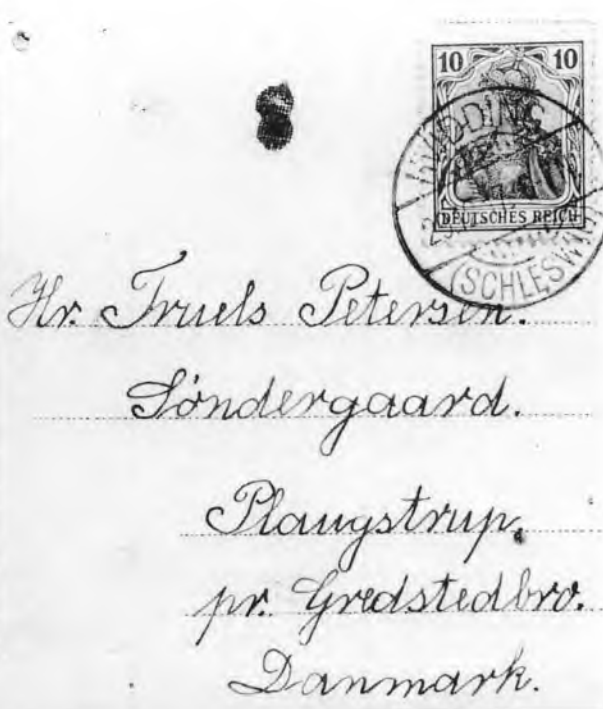 10 10
DEUTSCHES REICH
(SCHLESWIG)
Hr. Truels Petersen.
Søndergaard.
Plougstrup,
pr. Gredstedbro.
Danmark.